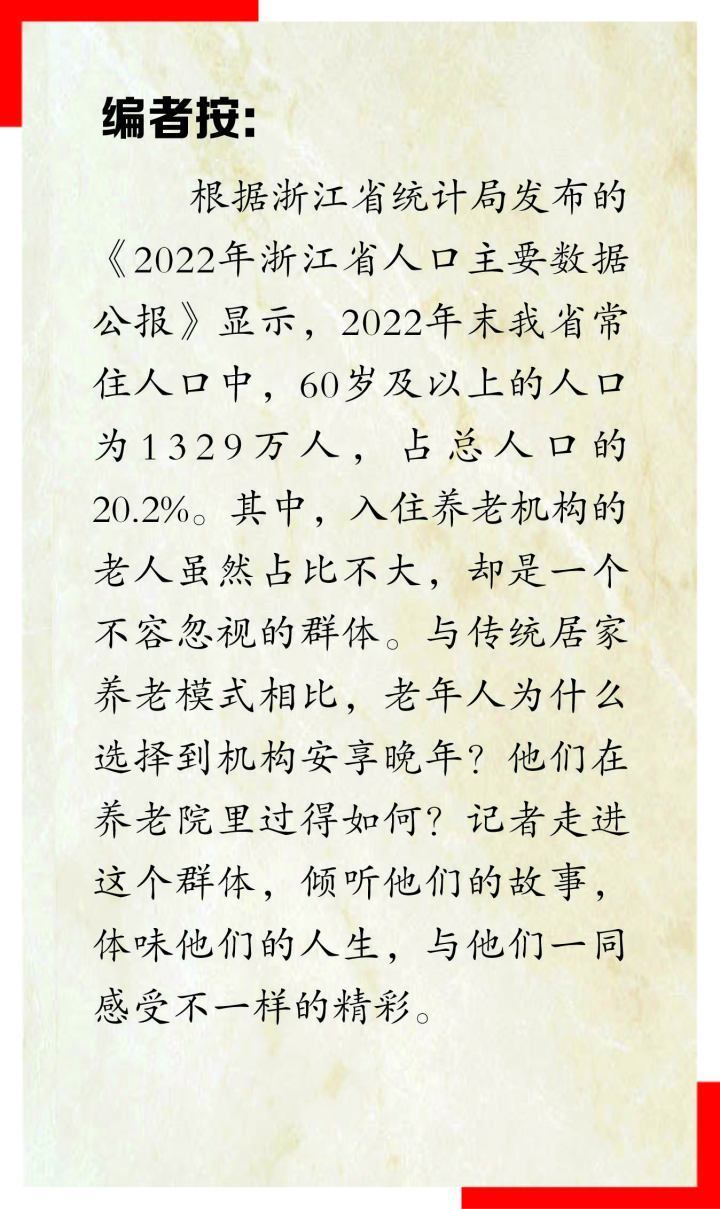 编者按:
根据浙江省统计局发布的
《2022年浙江省人口主要数据
公报》显示，2022年末我省常
住人口中，60岁及以上的人口
为1329万人，占总人口的
20.2%。其中，入住养老机构的
老人虽然占比不大，却是一个
不容忽视的群体。与传统居家
养老模式相比，老年人为什么
选择到机构安享晚年？他们在
养老院里过得如何？记者走进
这个群体，倾听他们的故事，
体味他们的人生，与他们一同
感受不一样的精彩。